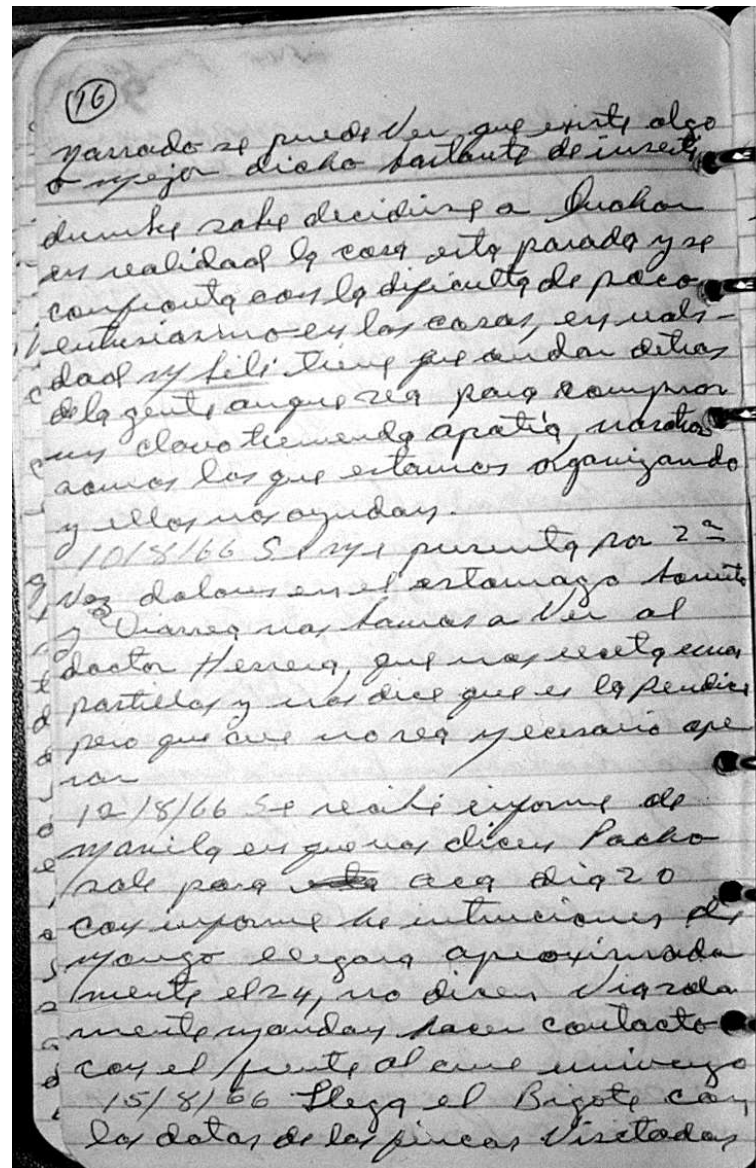 16
narrado se puede ver que existe algo
o mejor dicho bastante de incerti
dumbre sobre decidirse a luchar
en realidad la cosa esta parada y se
confronta con la dificulta de poco
entusiasmo en las cosas, en reali-
dad my bili tiene que andar detras
de la gente aunque sea para comprar
un clavo tremenda apatia, nosotros
somos los que estamos organizando
y ellos nos ayudan.
10/8/66 Se me presenta por 2ª
Vez dolores en el estomago bomito
y Diarrea nos bamos a Ver al
doctor Herrera, que nos receta unas
pastillas y nos dice que es la pendice
pero que cree no sea necesario ope
rar
12/8/66 Se recibe informe de
manila en que nos dicen Pacho
sale para aca dia 20
con informe he intenciones de
mongo llegara aproximada
mente el 24, no dicen Via sola
mente mandan hacer contacto
con el frente al cine universo
15/8/66 Llega el Bigote con
los datos de las fincas Visitadas